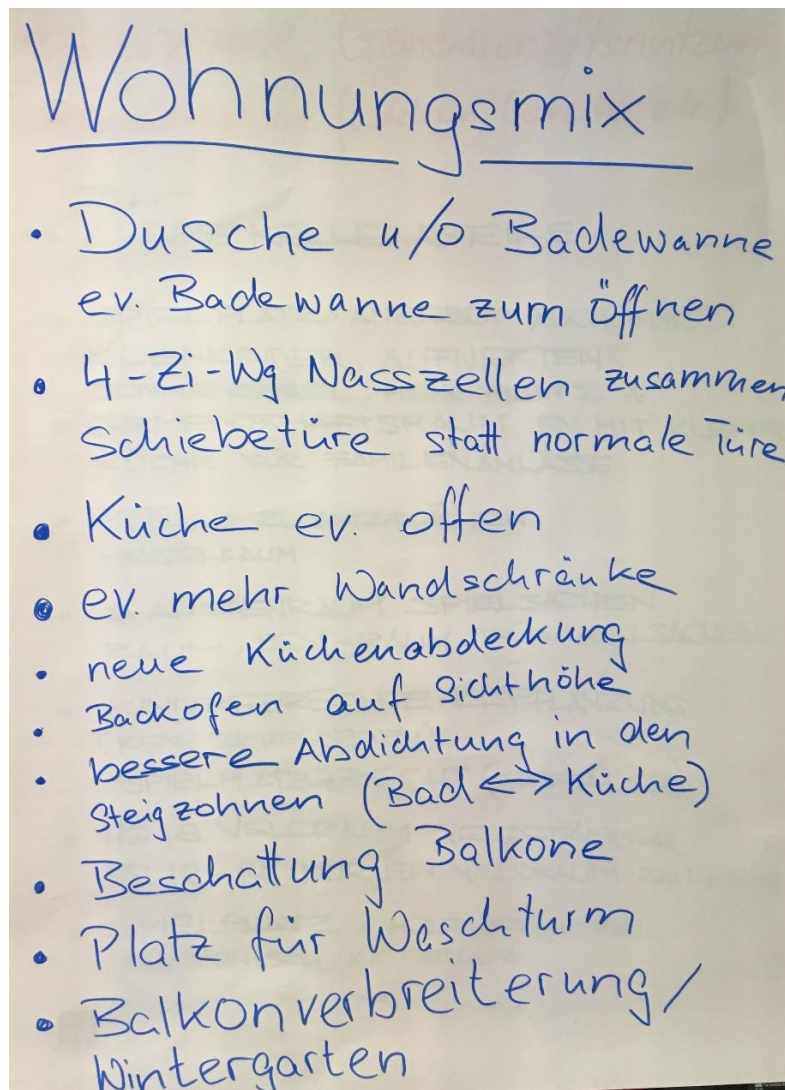 Wohnungsmix
• Dusche u/o Badewanne
ev. Badewanne zum Öffnen
• 4-Zi-Wg Nasszellen zusammen
Schiebetüre statt normale Türe
• Küche ev. offen
• ev. mehr Wandschränke
• neue Küchenabdeckung
• Backofen auf Sichthöhe
• bessere Abdichtung in den
Steigzohnen (Bad <-> Küche)
• Beschattung Balkone
• Platz für Waschturm
• Balkonverbreiterung/
Wintergarten